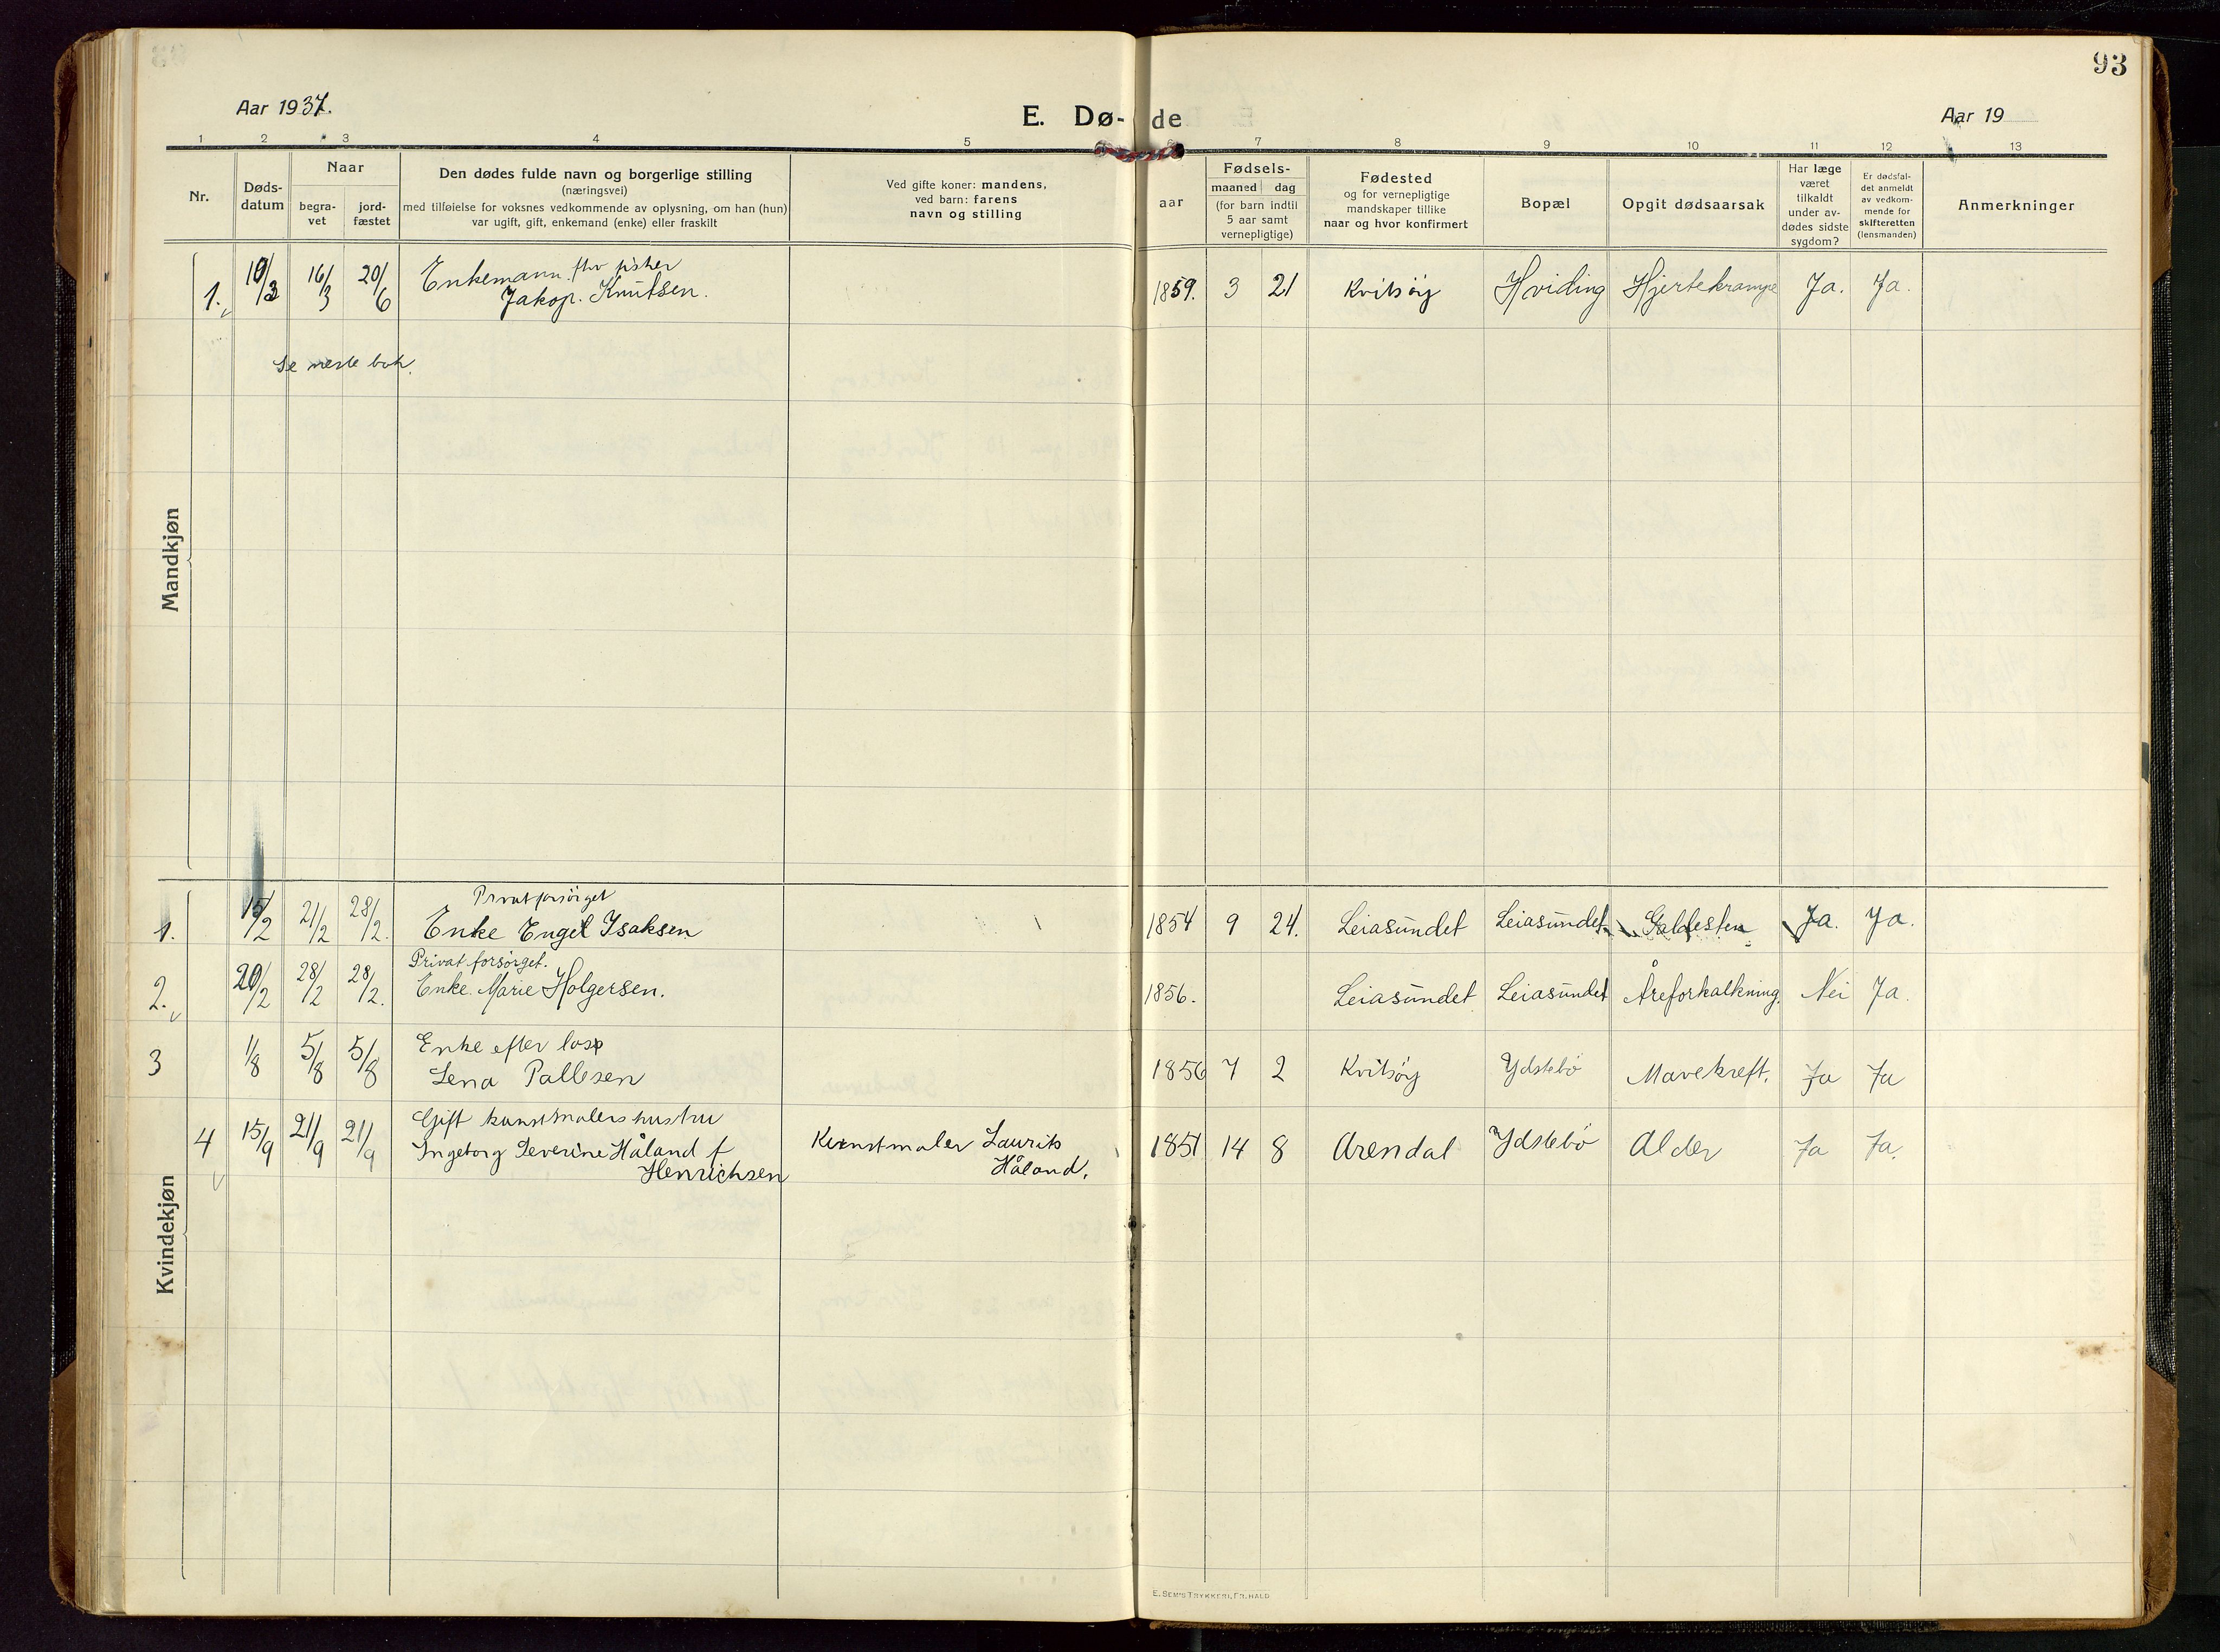 93
Aar 1937.
E. Dø- de
Aar 19
1 2 3 4 5 7 8 9 10 11 12 13
Nr.
Døds-
datum
Naar
begra-
vet
jord-
fæstet
Den dødes fulde navn og borgerlige stilling
(næringsvei)
med tilføielse for voksnes vedkommende av oplysning, om han (hun)
var ugift, gift, enkemand (enke) eller fraskilt
Ved gifte koner: mandens,
ved barn: farens
navn og stilling
aar
Fødsels-
maaned dag
(for barn indtil
5 aar samt
vernepligtige)
Fødested
og for vernepligtige
mandskaper tillike
naar og hvor konfirmert
Bopæl
Opgit dødsaarsak
Har læge
været
tilkaldt
under av-
dødes sidste
sygdom?
Er dødsfal-
det anmeldt
av vedkom-
mende for
skifteretten
(lensmanden)
Anmerkninger
Mandkjøn
1. 10/3 16/3 20/6 Enkemann fhv fisker
Jakop. Knutsen. 1859. 3 21 Kvitsöy Hviding Hjertekrampe Ja. Ja.
Se neste bok.
Kvindekjøn
Privatforsörget
1. 15/2 21/2 28/2. Enke Engel Isaksen 1854 9 24. Leiasundet Leiasundet Galdesten Ja. Ja.
Privat forsörget.
2. 20/2 28/2 28/2. Enke Marie Holgersen. 1856. Leiasundet Leiasundet Åreforkalkning. Nei Ja.
3 1/8 5/8 5/8 Enke efter los
Lena Pallesen 1856 7 2 Kvitsöy Ydstebö Mavekreft. Ja Ja
Gift kunstmalers hustru
4 15/9 21/9 21/9 Ingeborg Severine Håland f
Henrichsen Kunstmaler Laurits
Håland. 1851 14 8 Arendal Ydstebö Alder Ja Ja.
E. SEM'S TRYKKERI, FR.HALD